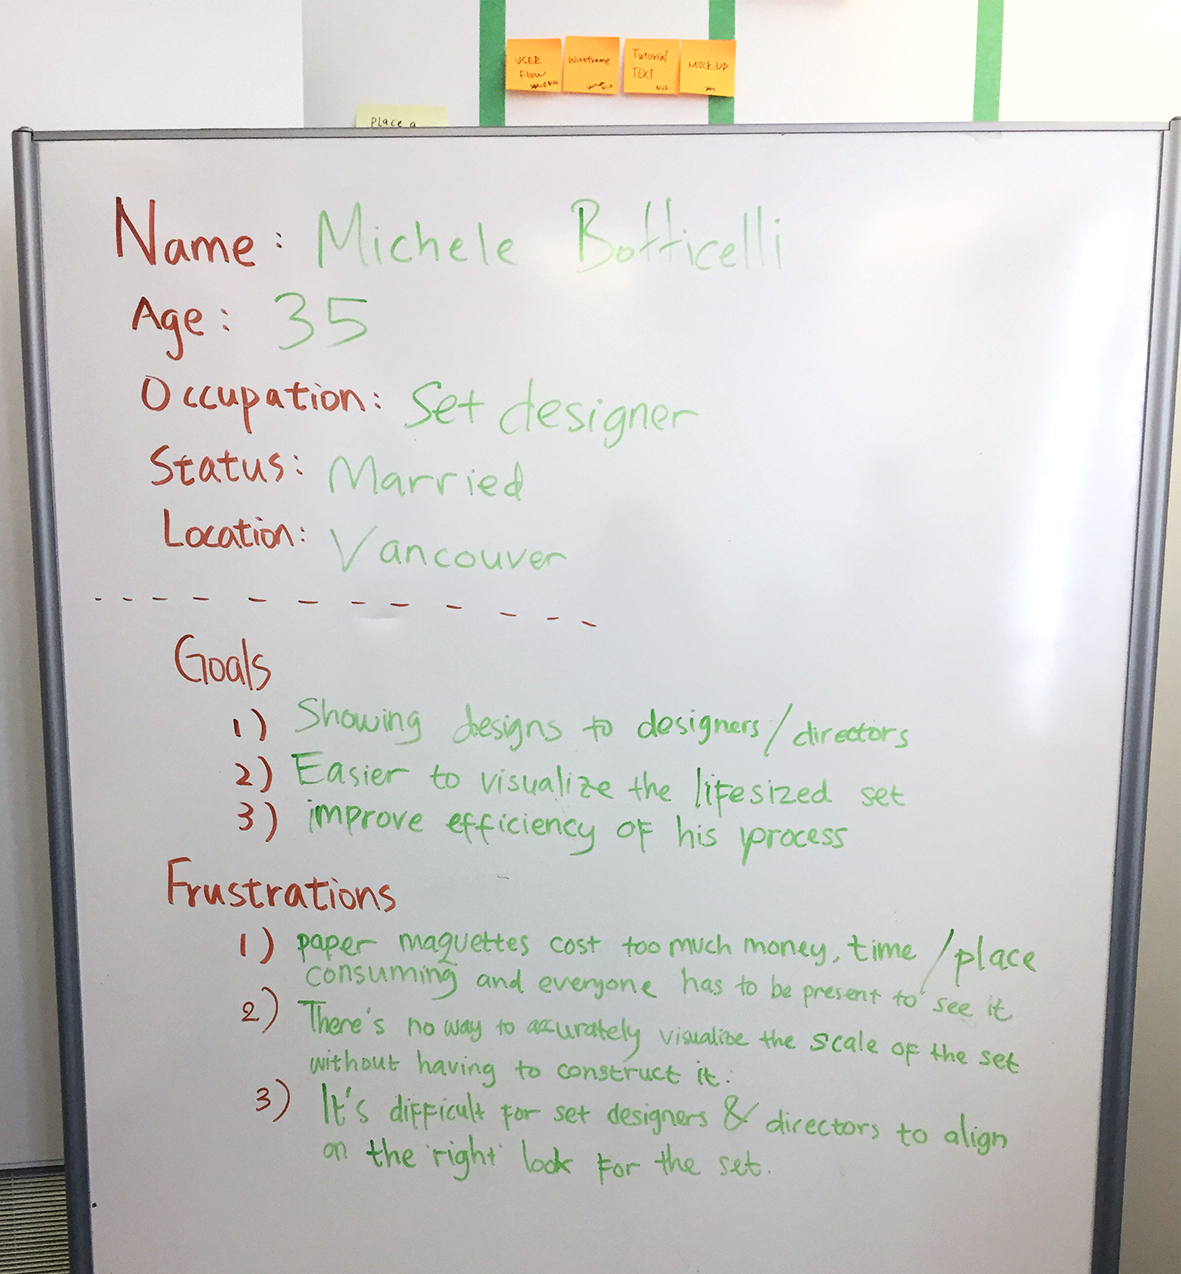 USER
Flow
Wireframe
Tutorial
TEXT
Nick
MOCK UP
PLACE a
Name: Michele Botticelli
Age: 35
Occupation: Set designer
Status: Married
Location: Vancouver
Goals
1) Showing designs to designers/directors
2) Easier to visualize the lifesized set
3) improve efficiency of his process
Frustrations
1) paper maquettes cost too much money, time / place
consuming and everyone has to be present to see it
2) There's no way to accurately visualize the scale of the set
without having to construct it.
3) It's difficult for set designers & directors to align
on the right look for the set.